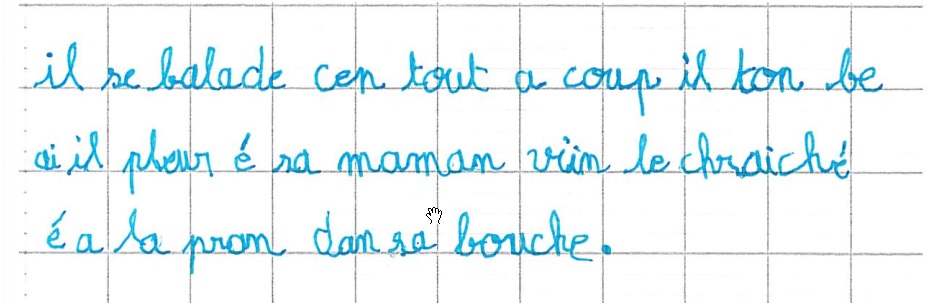 il se balade cen tout a coup il ton be
ai il pleur é sa maman viin le chraiché
é a la pran dan sa bouche.